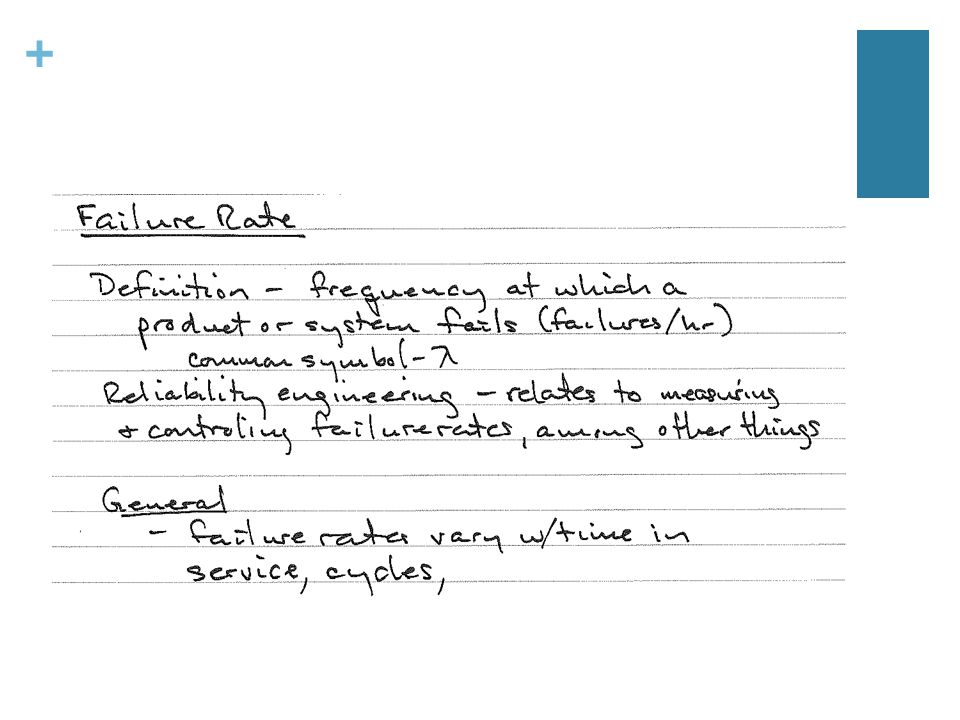 +
Failure Rate
Definition - frequency at which a
product or system fails (failures/hr)
common symbol - λ
Reliability engineering - relates to measuring
& controling failure rates, among other things
General
- failure rates vary w/time in
service, cycles,